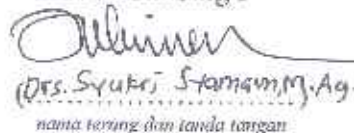 (Drs. Syukri Syamaun, M. Ag.
nama terang dan tanda tangan